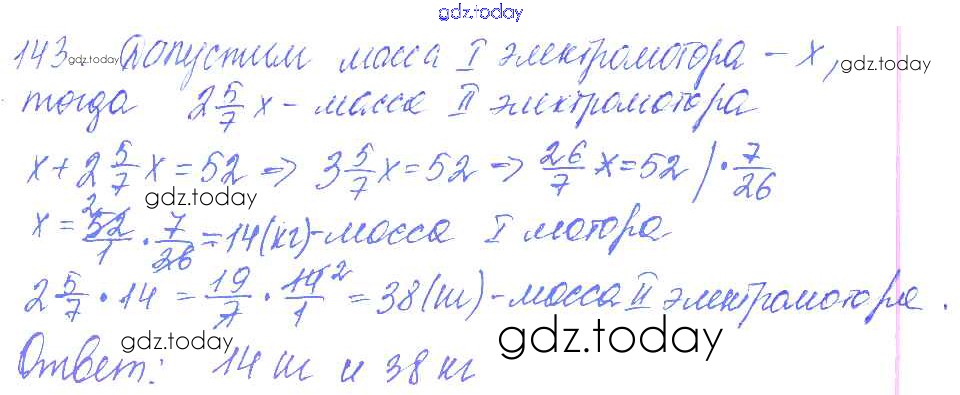 gdz.today
143 gdz.today Допустим масса I электромотора – x, gdz.today
тогда 2 5/7 x – масса II электромотора
x + 2 5/7 x = 52 => 3 5/7 x = 52 => 26/7 x = 52 | · 7/26
gdz.today
x = 52/1 · 7/26 = 14 (кг) – масса I мотора
2 5/7 · 14 = 19/7 · 14/1 = 38 (кг) – масса II электромотора.
gdz.today gdz.today
Ответ: 14 кг и 38 кг